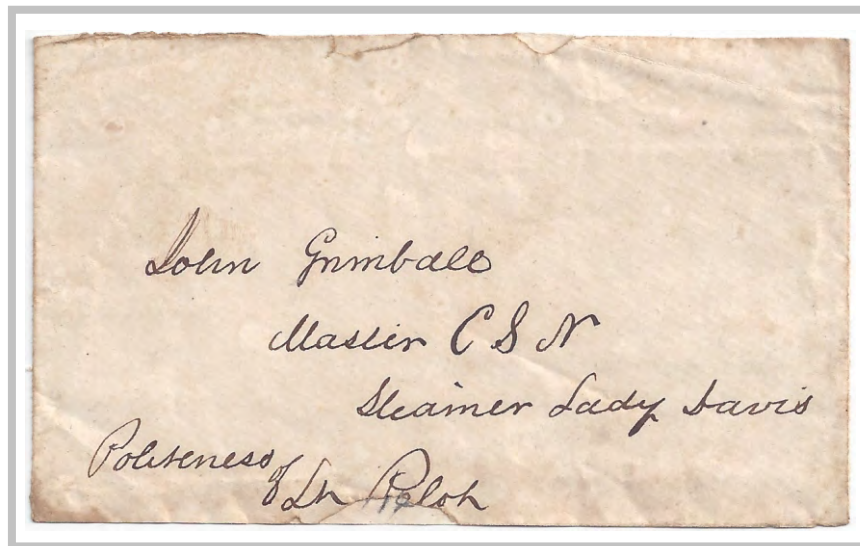 John Grimball
Master C S N
Steamer Lady Davis
Politeness
of Lt